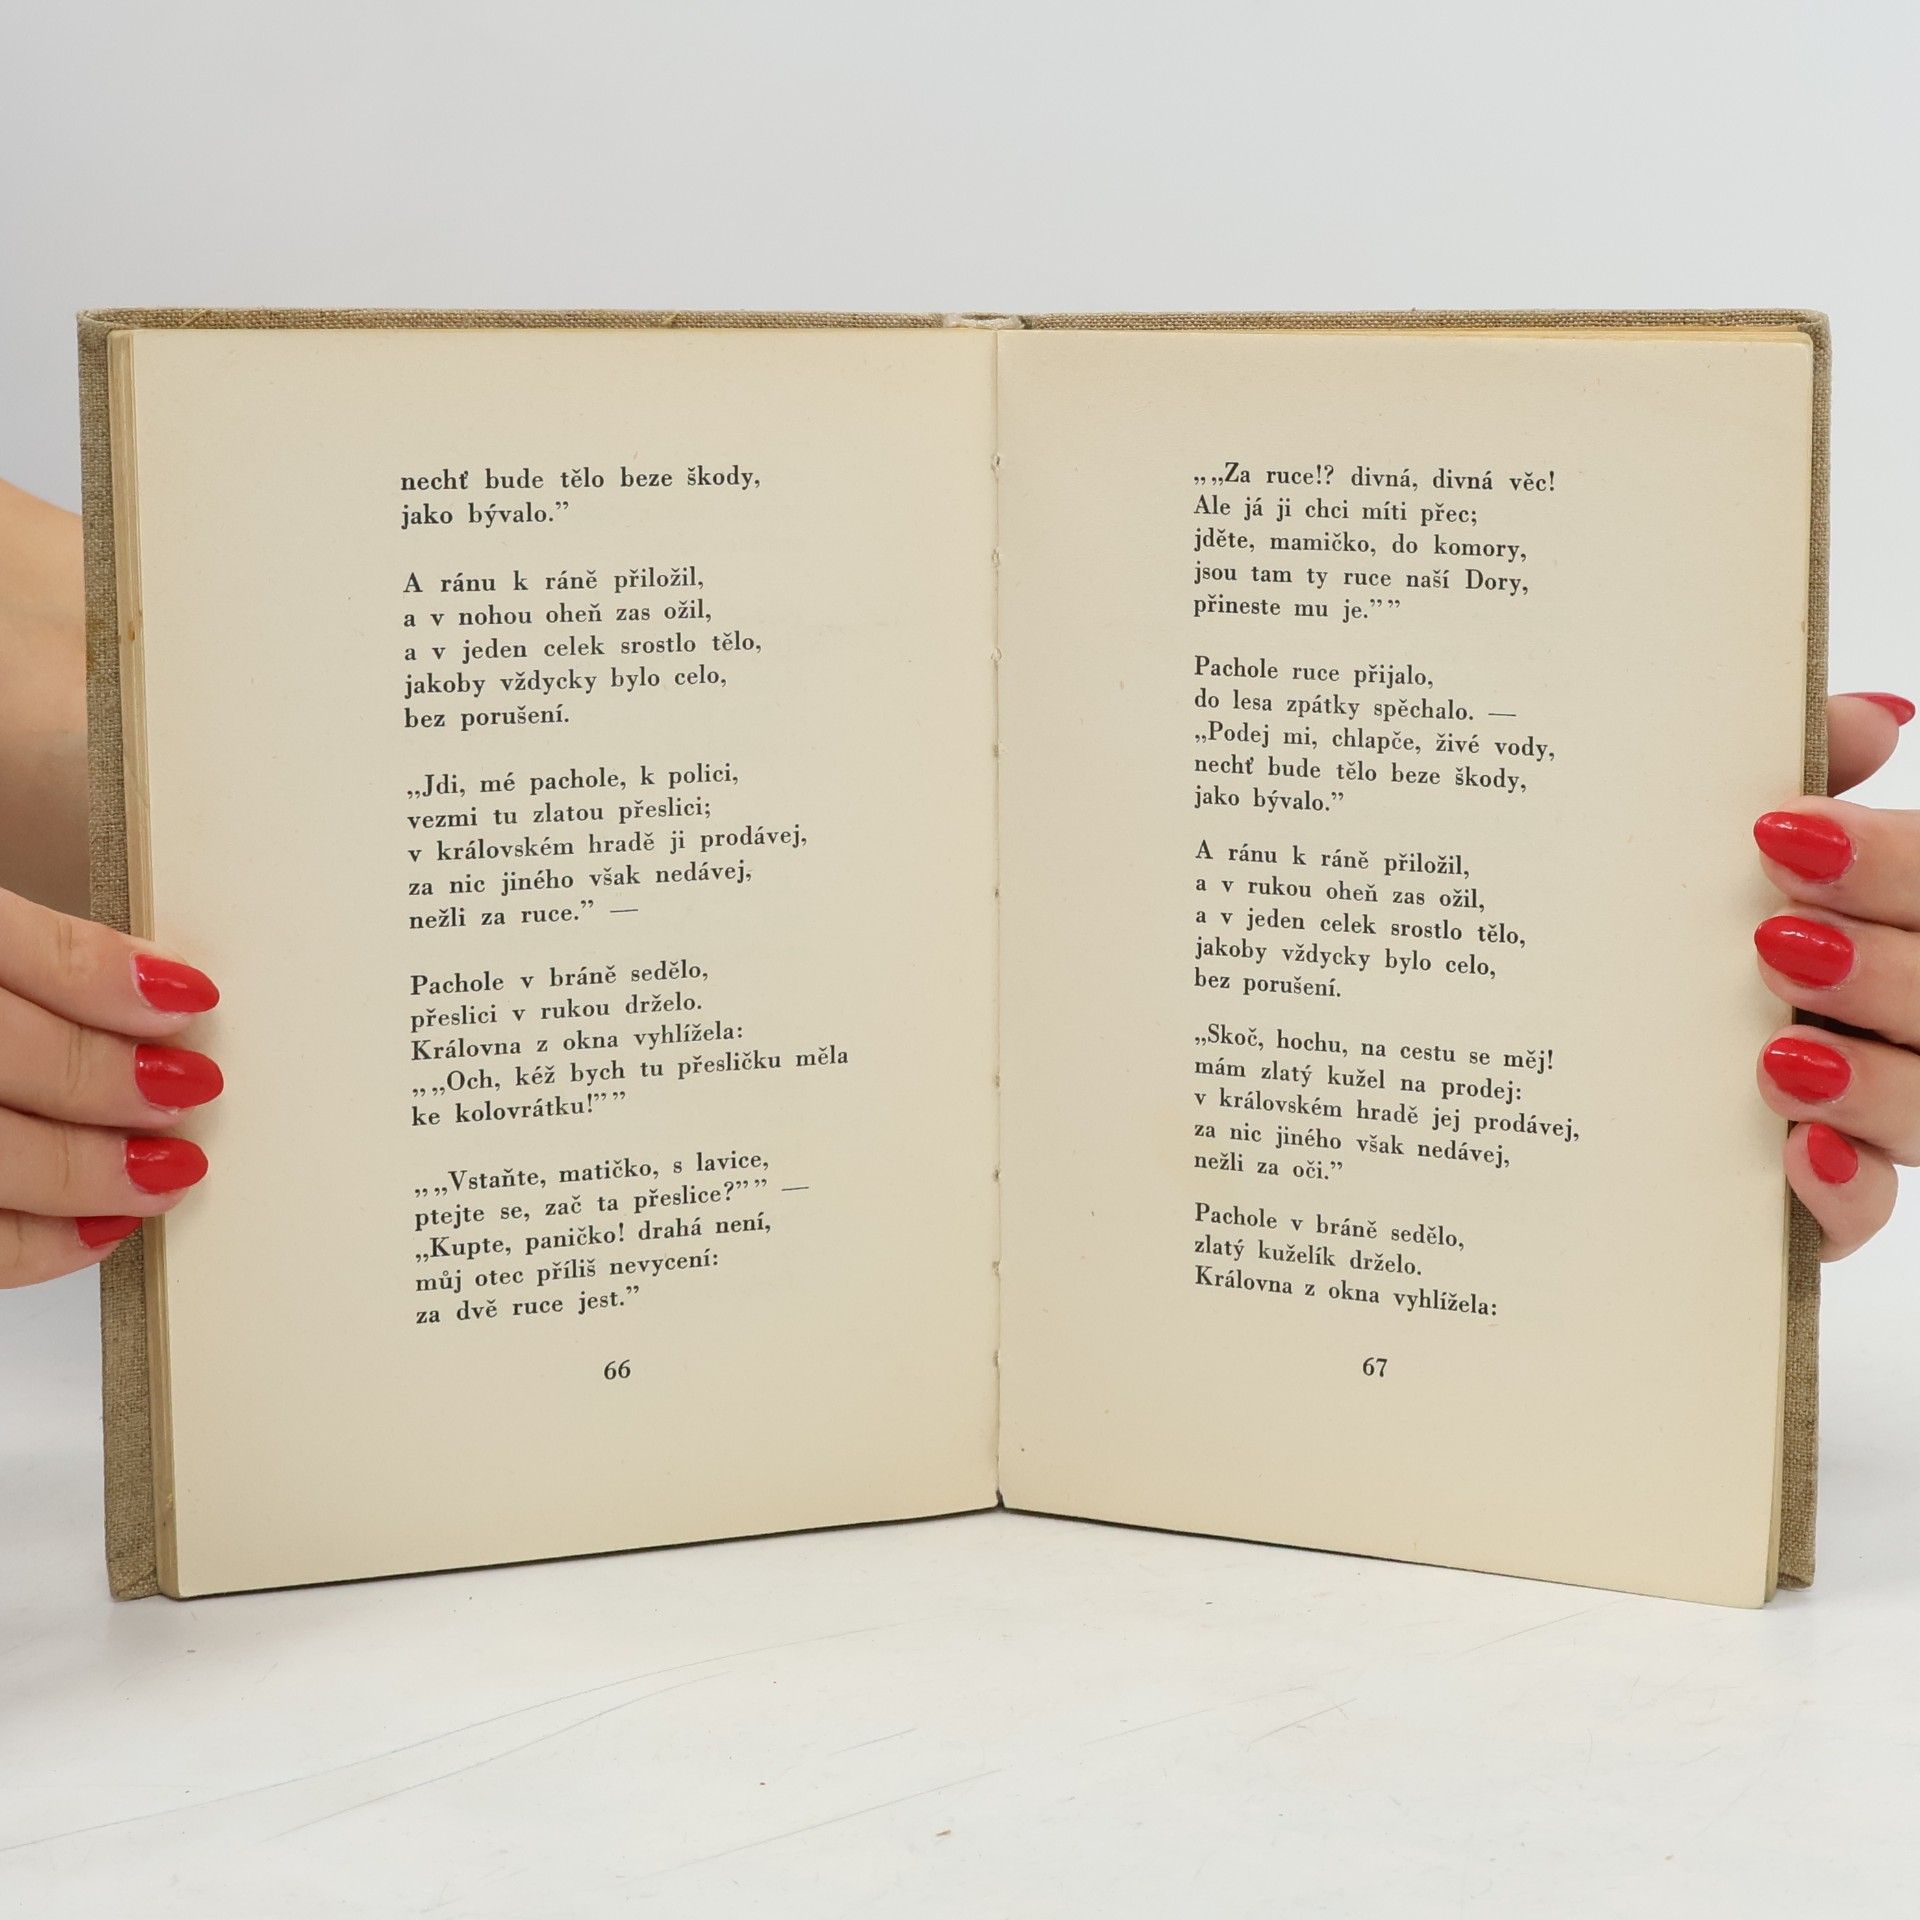 nechť bude tělo beze škody,
jako bývalo.”
A ránu k ráně přiložil,
a v nohou oheň zas ožil,
a v jeden celek srostlo tělo,
jakoby vždycky bylo celo,
bez porušení.
„Jdi, mé pachole, k polici,
vezmi tu zlatou přeslici;
v královském hradě ji prodávej,
za nic jiného však nedávej,
nežli za ruce.” —
Pachole v bráně sedělo,
přeslici v rukou drželo.
Královna z okna vyhlížela:
„„Och, kéž bych tu přesličku měla
ke kolovrátku!””
„„Vstaňte, matičko, s lavice,
ptejte se, zač ta přeslice?”” —
„Kupte, paničko! drahá není,
můj otec příliš nevycení:
za dvě ruce jest.”
66
„„Za ruce!? divná, divná věc!
Ale já ji chci míti přec;
jděte, mamičko, do komory,
jsou tam ty ruce naší Dory,
přineste mu je.””
Pachole ruce přijalo,
do lesa zpátky spěchalo. —
„Podej mi, chlapče, živé vody,
nechť bude tělo beze škody,
jako bývalo.”
A ránu k ráně přiložil,
a v rukou oheň zas ožil,
a v jeden celek srostlo tělo,
jakoby vždycky bylo celo,
bez porušení.
„Skoč, hochu, na cestu se měj!
mám zlatý kužel na prodej:
v královském hradě jej prodávej,
za nic jiného však nedávej,
nežli za oči.”
Pachole v bráně sedělo,
zlatý kuželík drželo.
Královna z okna vyhlížela:
67